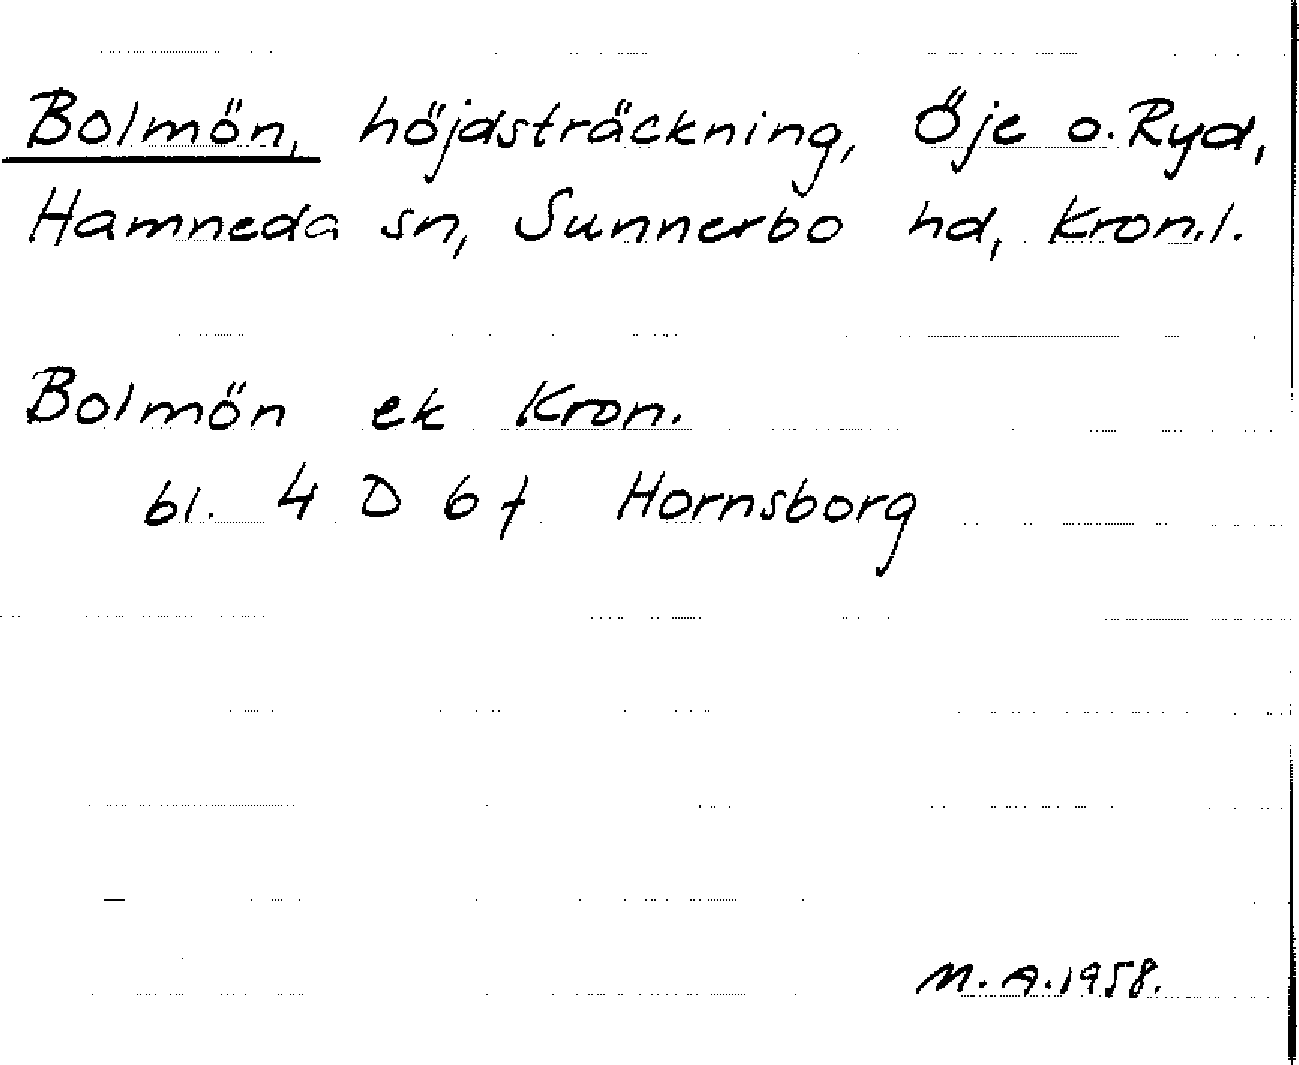 Bolmön, höjdsträckning, Öje o. Ryd,
Hamneda sn, Sunnerbo hd, Kron.l.
Bolmön ek Kron.
bl. 4 D 6 f Hornsborg
M.A.1958.